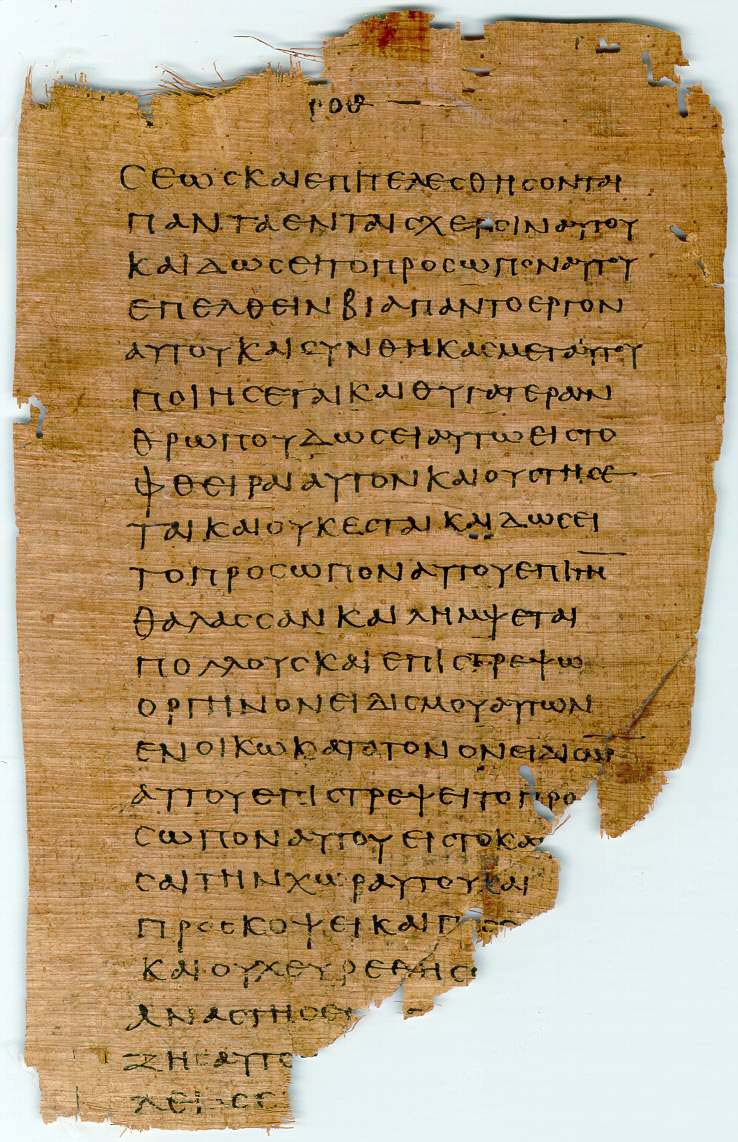 ΡΟΘ
ϹΕΩϹΚΑΙΕΠΙΤΕΛΕϹΘΗϹΟΝΤΑΙ
ΠΑΝΤΑΕΝΤΑΙϹΧΕΡϹΙΝΑΥΤΟΥ
ΚΑΙΔΩϹΕΙΤΟΠΡΟϹΩΠΟΝΑΥΤΟΥ
ΕΠΕΛΘΕΙΝΒΙΑΠΑΝΤΟΕΡΓΟΝ
ΑΥΤΟΥΚΑΙϹΥΝΘΗΚΑϹΜΕΤΑΥΤΟΥ
ΠΟΙΗϹΕΤΑΙΚΑΙΘΥΓΑΤΕΡΑΝ
ΘΡΩΠΟΥΔΩϹΕΙΑΥΤΩΕΙϹΤΟ
ΦΘΕΙΡΑΙΑΥΤΟΝΚΑΙΟΥϹΤΗϹΕ
ΤΑΙΚΑΙΟΥΚΕϹΤΑΙΚΑΙΔΩϹΕΙ
ΤΟΠΡΟϹΩΠΟΝΑΥΤΟΥΕΠΙΤΗ̅
ΘΑΛΑϹϹΑΝΚΑΙΛΗΜΨΕΤΑΙ
ΠΟΛΛΟΥϹΚΑΙΕΠΙϹΤΡΕΨΩ
ΟΡΓΗΝΟΝΕΙΔΙϹΜΟΥΑΥΤΩΝ
ΕΝΟΙΚΩΚΑΤΑΤΟΝΟΝΕΙΔΙϹΜ
ΑΥΤΟΥΕΠΙϹΤΡΕΨΕΙΤΟΠΡΟ
ϹΩΠΟΝΑΥΤΟΥΕΙϹΤΟΚΑ
ϹΑΙΤΗΝΧΩΡΑΥΤΟΥΚΑΙ
ΠΡΟϹΚΟΨΕΙΚΑΙΠΕϹ
ΚΑΙΟΥΧΕΥΡΕΘΗϹΕ
ΑΝΑϹΤΗϹΕ
ΖΗϹΑΥΤΟ